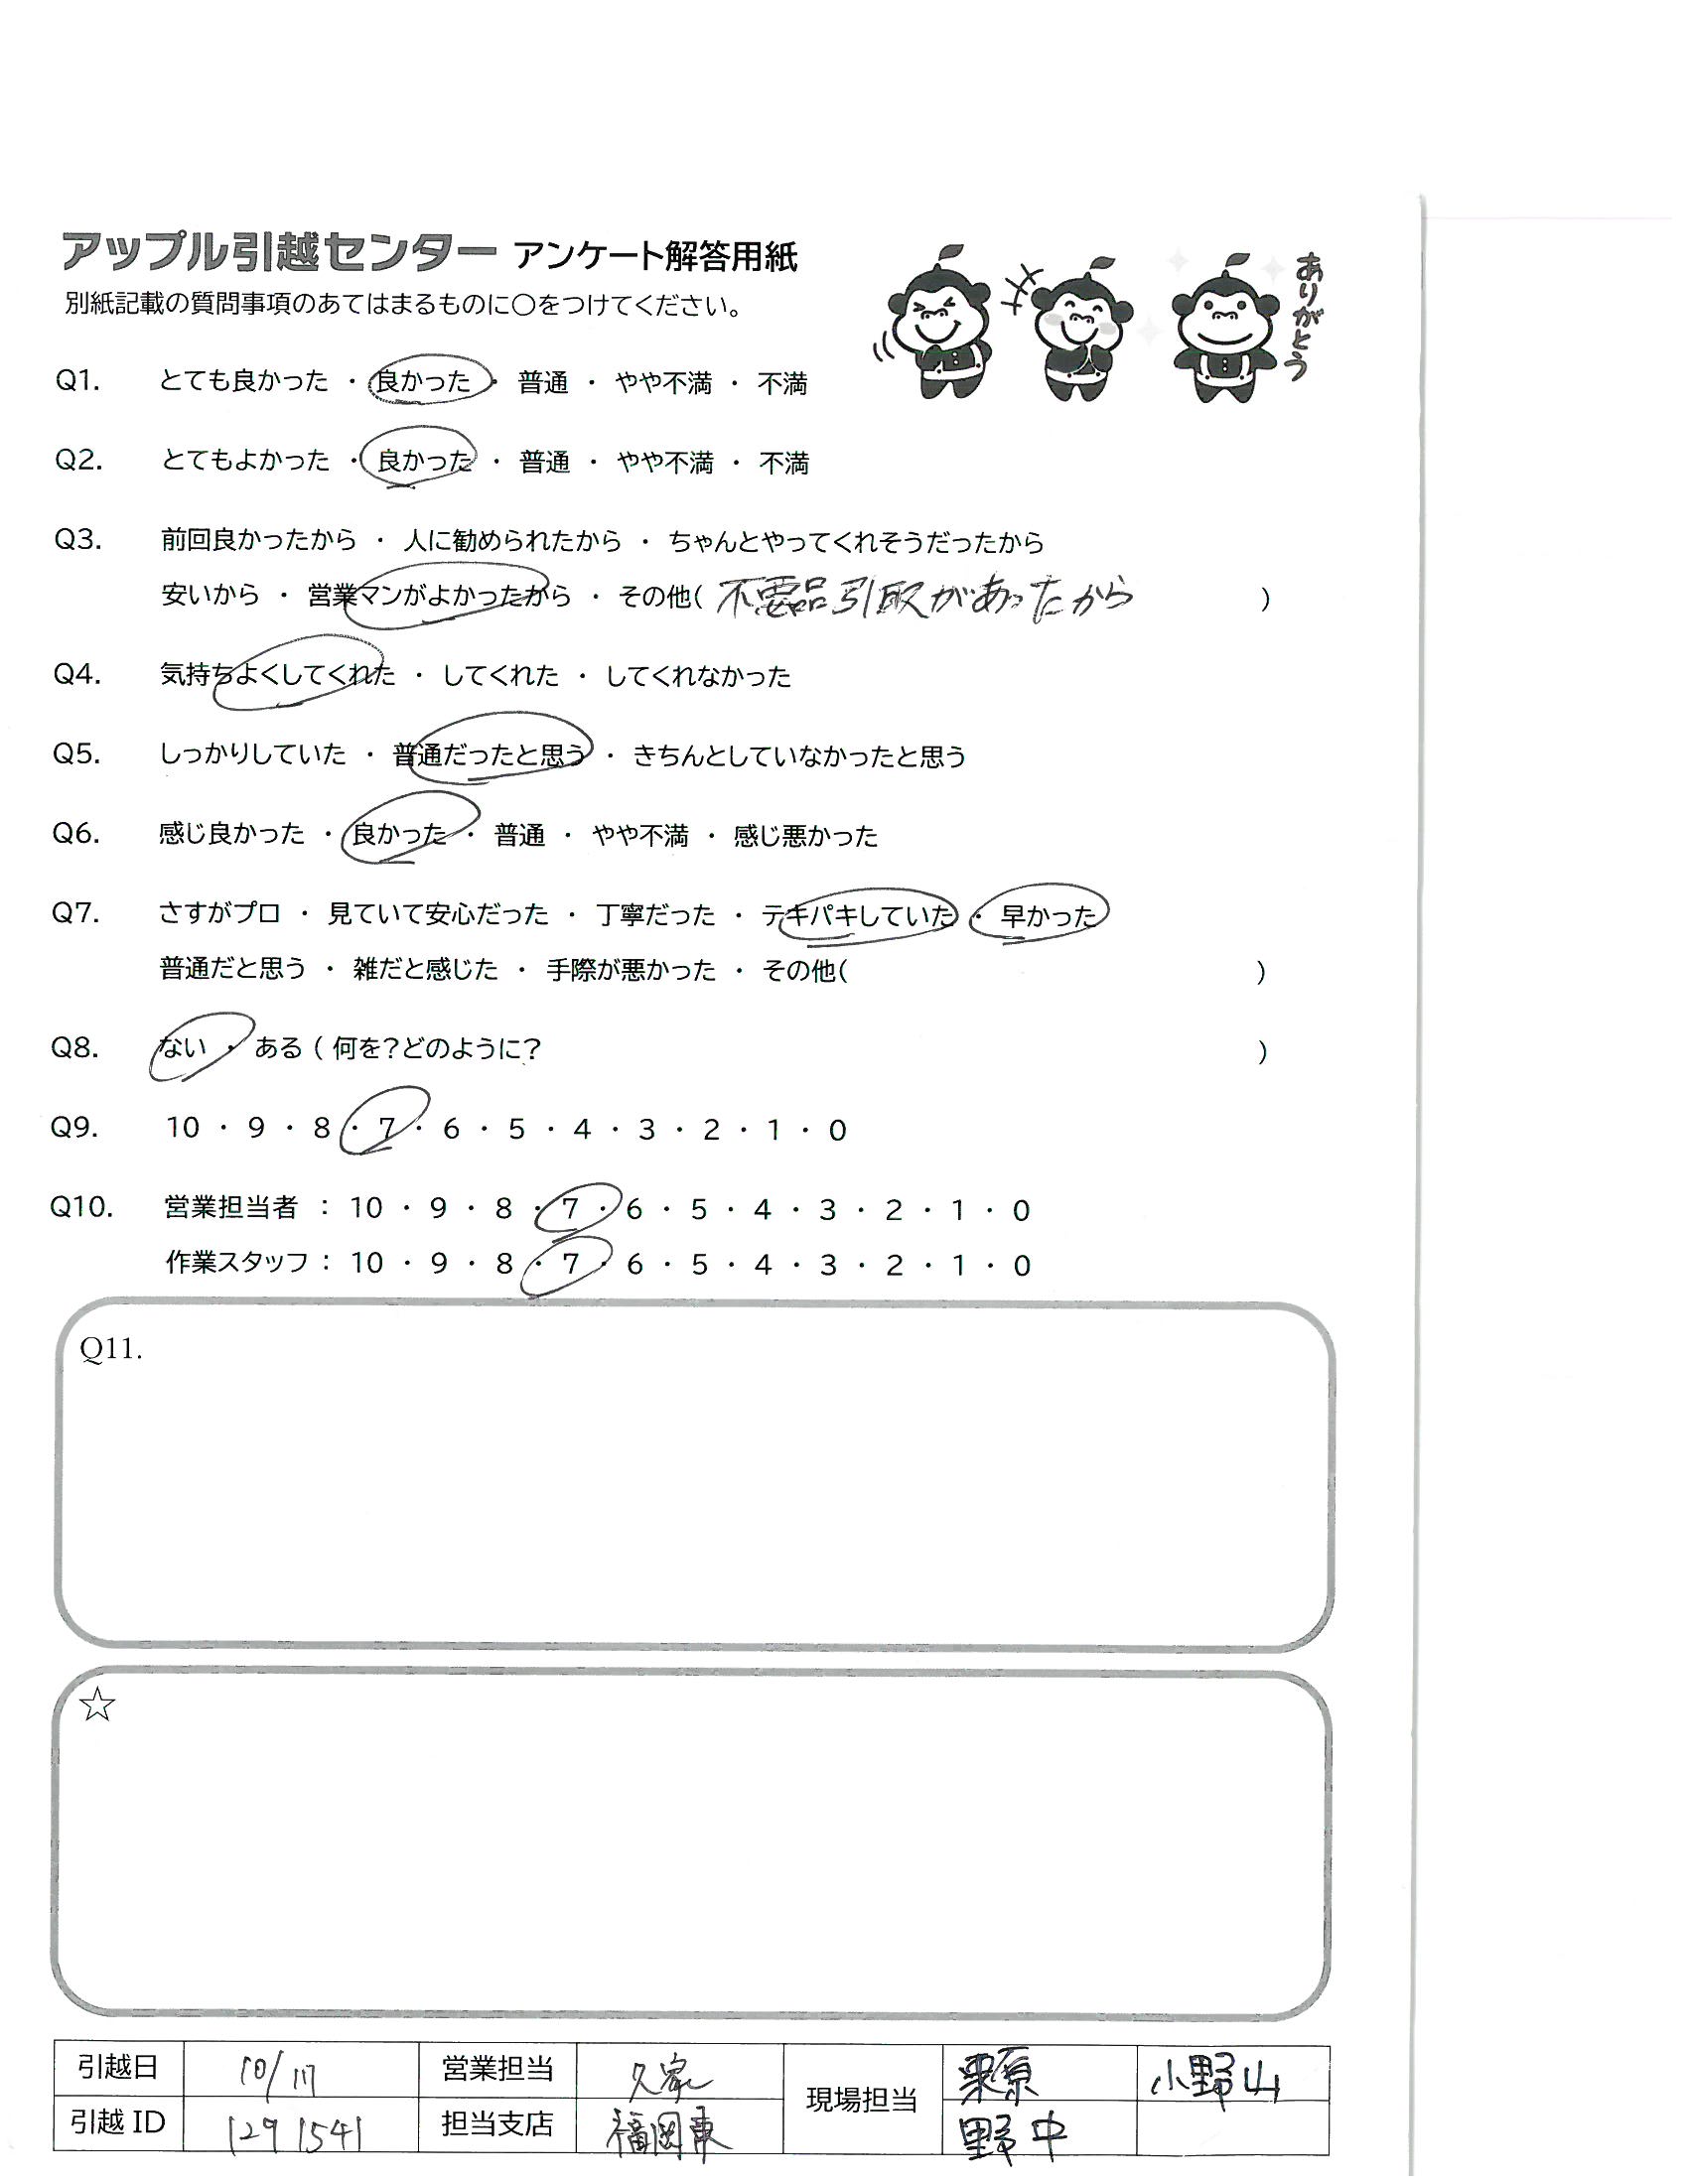 アップル引越センター アンケート解答用紙
別紙記載の質問事項のあてはまるものに○をつけてください。
ありがとう
Q1. とても良かった ・ 良かった ・ 普通 ・ やや不満 ・ 不満
Q2. とてもよかった ・ 良かった ・ 普通 ・ やや不満 ・ 不満
Q3. 前回良かったから ・ 人に勧められたから ・ ちゃんとやってくれそうだったから
安いから ・ 営業マンがよかったから ・ その他( 不要品引取があったから )
Q4. 気持ちよくしてくれた ・ してくれた ・ してくれなかった
Q5. しっかりしていた ・ 普通だったと思う ・ きちんとしていなかったと思う
Q6. 感じ良かった ・ 良かった ・ 普通 ・ やや不満 ・ 感じ悪かった
Q7. さすがプロ ・ 見ていて安心だった ・ 丁寧だった ・ テキパキしていた ・ 早かった
普通だと思う ・ 雑だと感じた ・ 手際が悪かった ・ その他( )
Q8. ない ・ ある ( 何を?どのように? )
Q9. 10 ・ 9 ・ 8 ・ 7 ・ 6 ・ 5 ・ 4 ・ 3 ・ 2 ・ 1 ・ 0
Q10. 営業担当者 : 10 ・ 9 ・ 8 ・ 7 ・ 6 ・ 5 ・ 4 ・ 3 ・ 2 ・ 1 ・ 0
作業スタッフ : 10 ・ 9 ・ 8 ・ 7 ・ 6 ・ 5 ・ 4 ・ 3 ・ 2 ・ 1 ・ 0
Q11.
☆
引越日 10/ 営業担当 久家 現場担当 栗原 小野山
引越 ID 1291541 担当支店 福岡東 野中